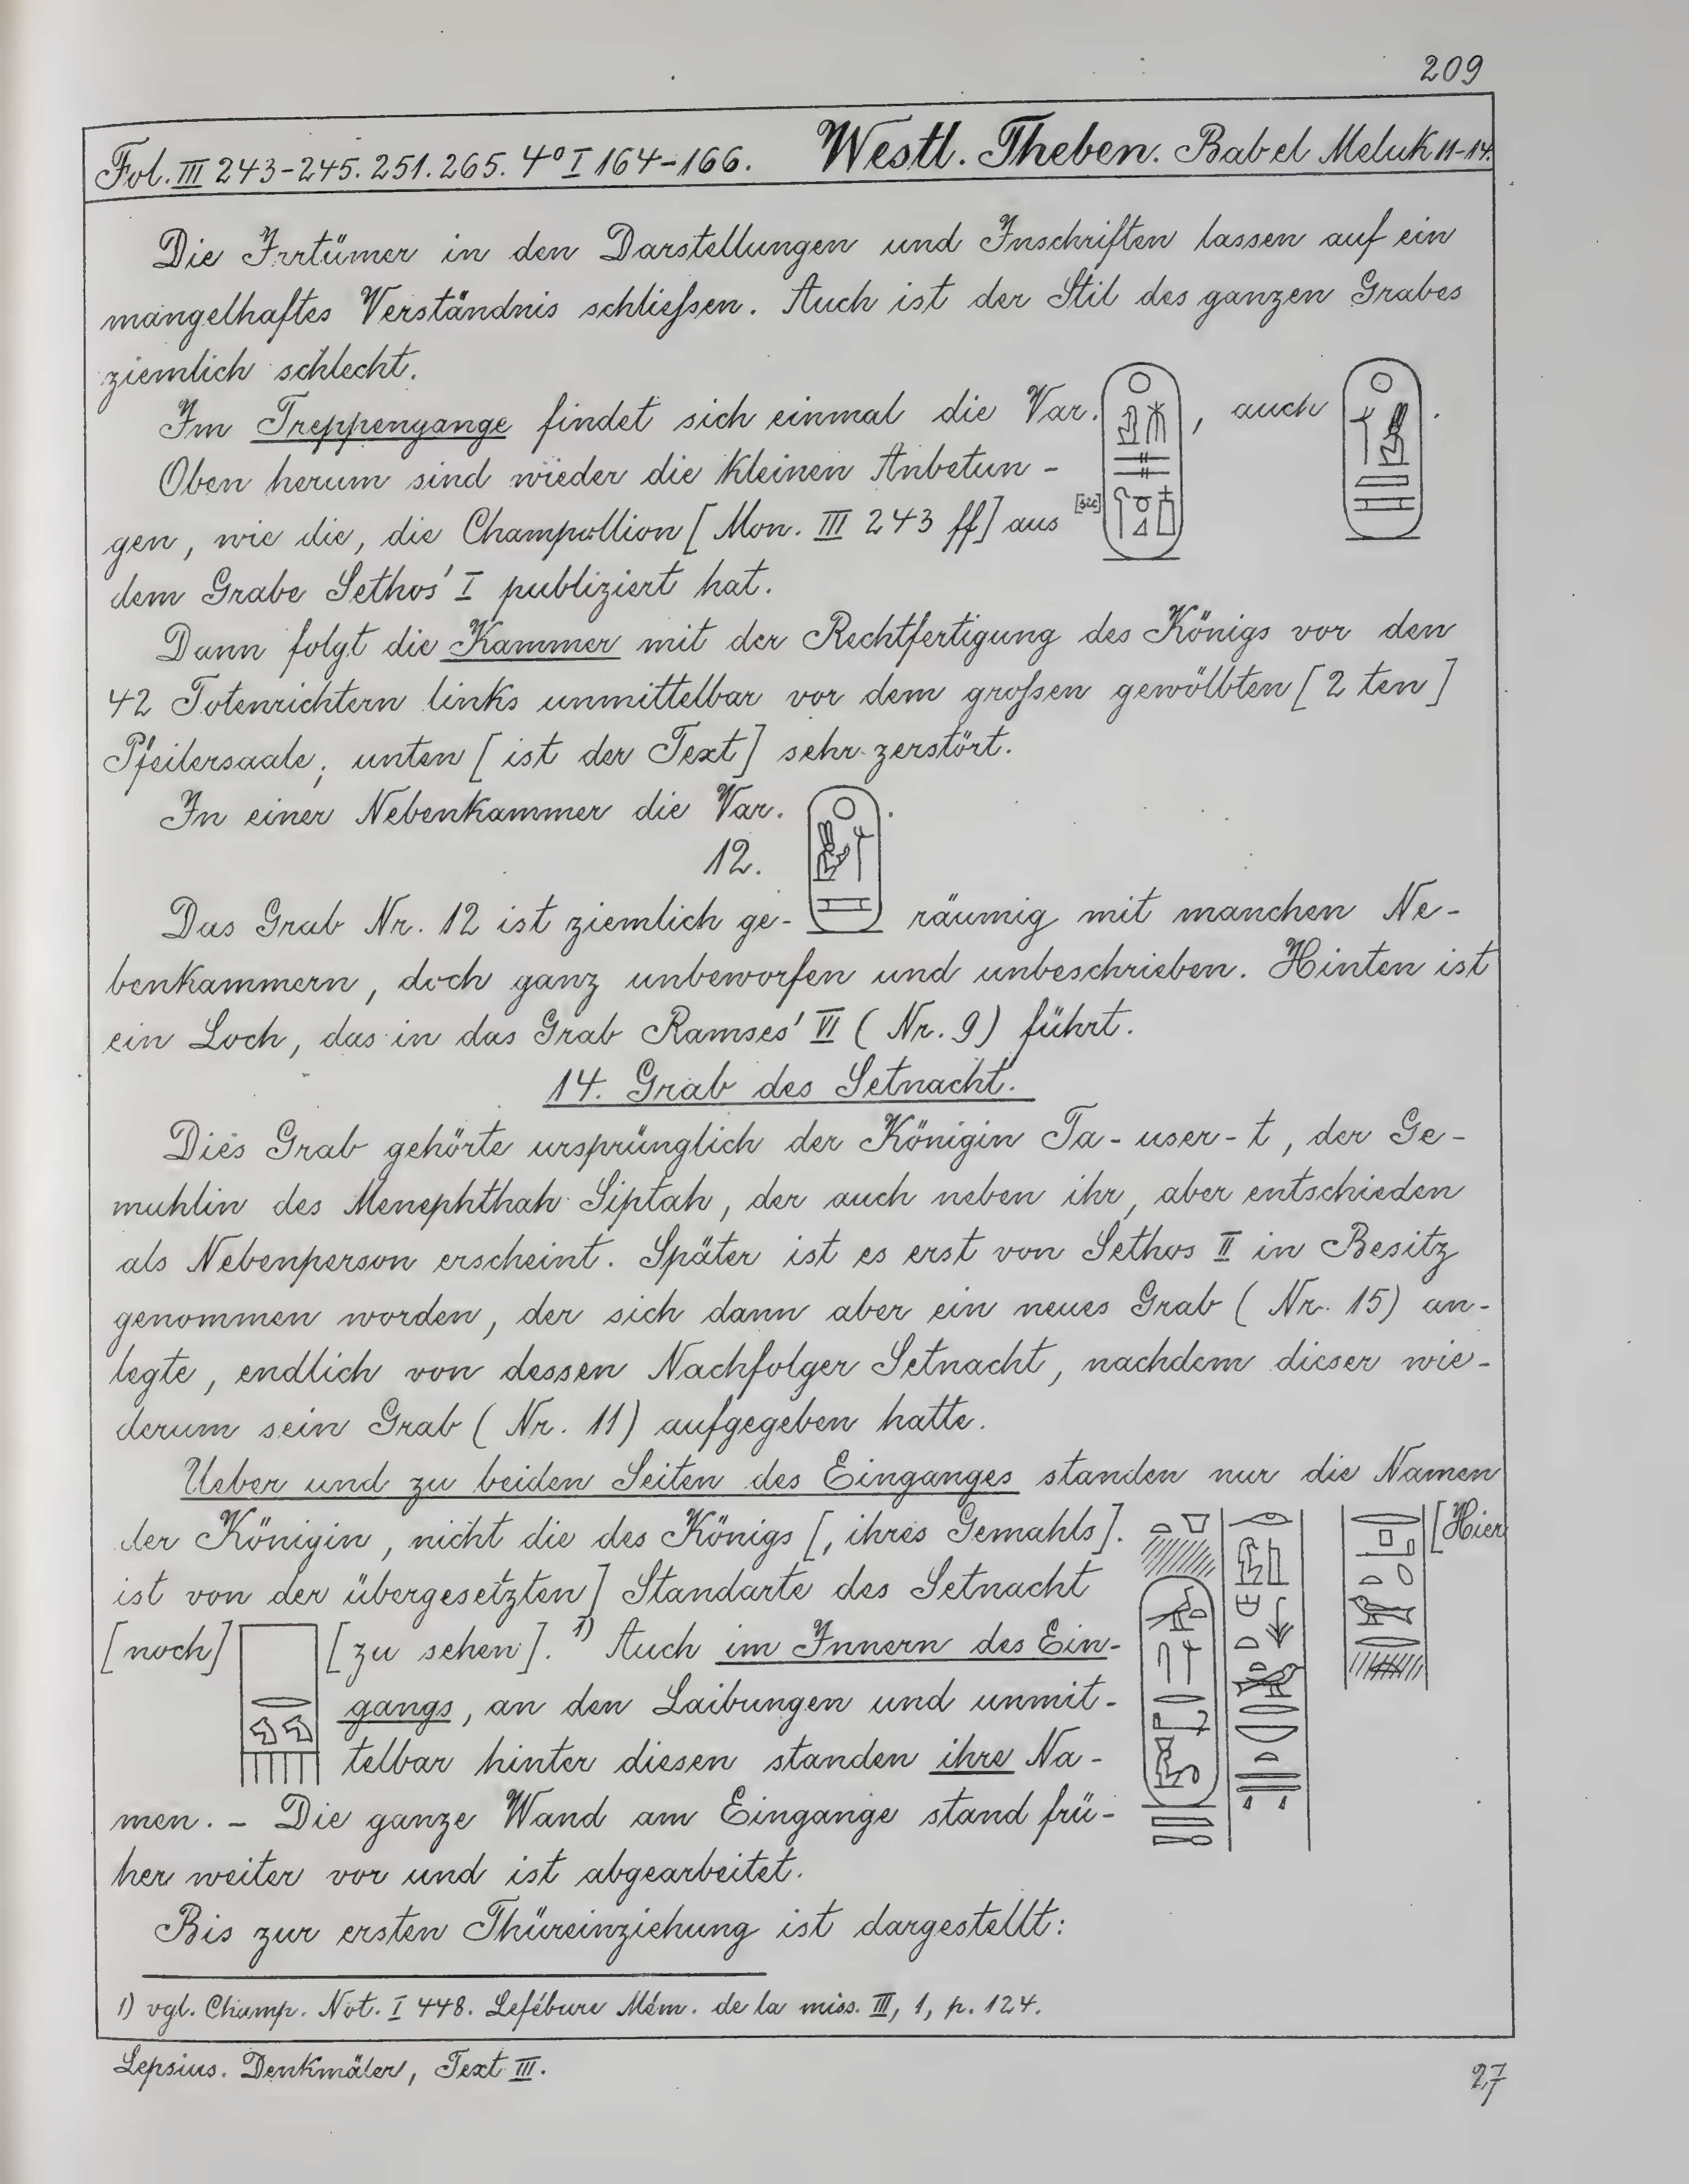 209
Fol. III 243-245. 251. 265. 4° I 164-166. Westl. Theben. Bab el Meluk 11-14.
Die Irrtümer in den Darstellungen und Inschriften lassen auf ein
mangelhaftes Verständnis schließen. Auch ist der Stil des ganzen Grabes
ziemlich schlecht.
Im Treppengange findet sich einmal die Var. , auch .
Oben herum sind wieder die kleinen Anbetun-
gen, wie die, die Champollion [Mon. III 243 ff] aus [sic]
dem Grabe Sethos' I publiziert hat.
Dann folgt die Kammer mit der Rechtfertigung des Königs vor den
42 Totenrichtern links unmittelbar vor dem großen gewölbten [2 ten]
Pfeilersaale; unten [ist der Text] sehr zerstört.
In einer Nebenkammer die Var. .
12.
Das Grab Nr. 12 ist ziemlich ge- räumig mit manchen Ne-
benkammern, doch ganz unbeworfen und unbeschrieben. Hinten ist
ein Loch, das in das Grab Ramses' VI (Nr. 9) führt.
14. Grab des Setnacht.
Dies Grab gehörte ursprünglich der Königin Ta-user-t, der Ge-
mahlin des Menephthah Siptah, der auch neben ihr, aber entschieden
als Nebenperson erscheint. Später ist es erst von Sethos II in Besitz
genommen worden, der sich dann aber ein neues Grab (Nr. 15) an-
legte, endlich von dessen Nachfolger Setnacht, nachdem dieser wie-
derum sein Grab (Nr. 11) aufgegeben hatte.
Ueber und zu beiden Seiten des Einganges standen nur die Namen
der Königin, nicht die des Königs [, ihres Gemahls]. [Hier
ist von der übergesetzten] Standarte des Setnacht
[noch] [zu sehen]. 1) Auch im Innern des Ein-
gangs, an den Laibungen und unmit-
telbar hinter diesen standen ihre Na-
men. - Die ganze Wand am Eingange stand frü-
her weiter vor und ist abgearbeitet.
Bis zur ersten Thüreinziehung ist dargestellt:
1) vgl. Champ. Not. I 448. Lefébure Mém. de la miss. III, 1, p. 124.
Lepsius. Denkmäler, Text III.
27